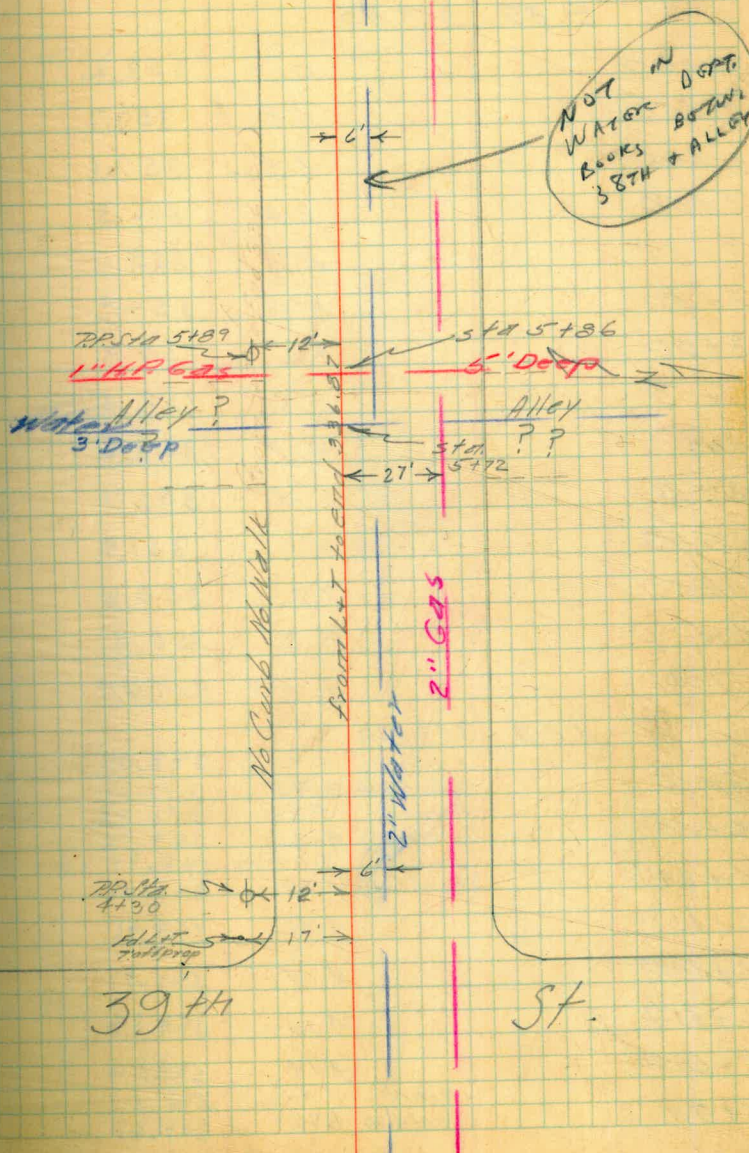 NOT IN
WATER DEPT.
BOOKS BETW.
38TH + ALLEY
6'
P.P. Sta 5+89
12'
sta 5+86
1" H.P. Gas
5' Deep
N
Alley ?
Alley
Water
3' Deep
?
? ?
sta.
5+72
27'
from L+T to end 336.87
No Curb No Walk
2" Gas
2" Water
6'
P.P. Sta.
4+30
12'
Fd. L+T
17'
39th St.